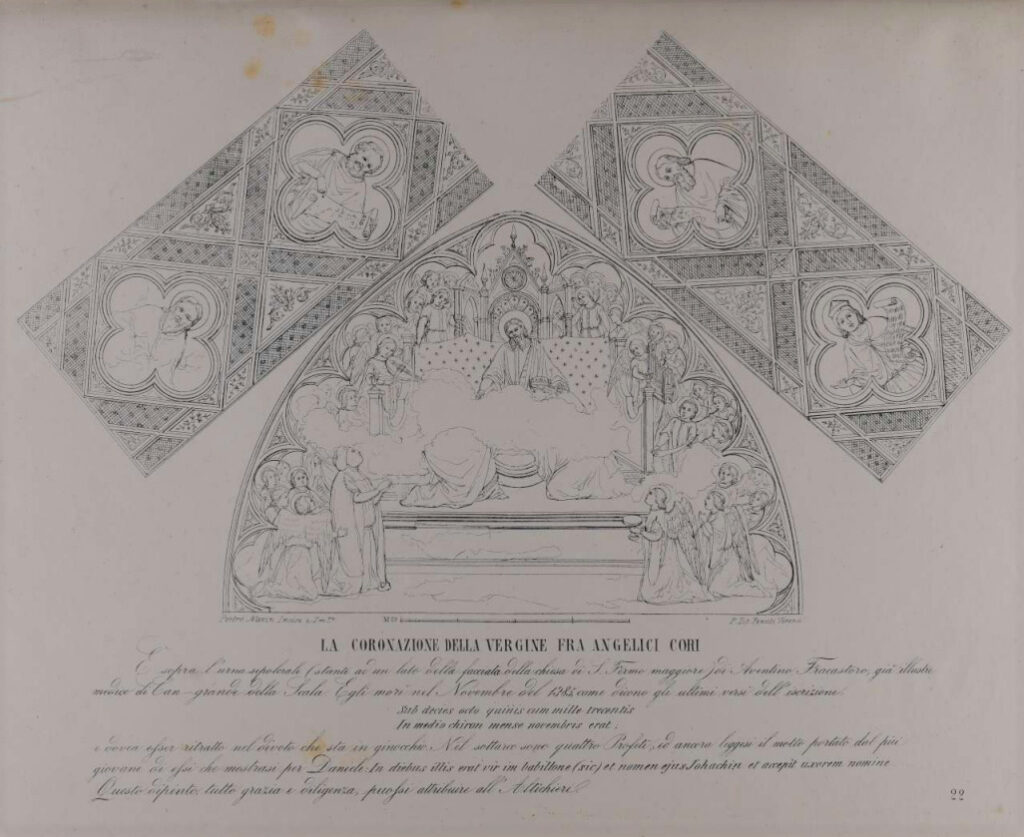 Pietro Nanin inc.
P. Lit. Verona
LA CORONAZIONE DELLA VERGINE FRA ANGELICI CORI
E sopra l'urna sepolcrale (stante ad un lato della facciata della chiesa di S. Fermo maggiore) di Aventino Fracastoro, già illustre
medico di Can-grande della Scala. Egli morì nel Novembre del 1385, come dicono gli ultimi versi dell'iscrizione.
Sub decies octo quinis cum mille trecentis
In medio chiron mense novembris erat;
e dovea esser ritratto nel divoto che sta in ginocchio. Nel sottarco sono quattro Profeti, ed ancora leggesi il motto portato dal più
giovane di essi che mostrasi per Daniele. In diebus illis erat vir im babillone (sic) et nomen ejus Johachin et accepit uxorem nomine
Questo dipinto, tutto grazia e diligenza, puossi attribuire all'Altichieri.
22